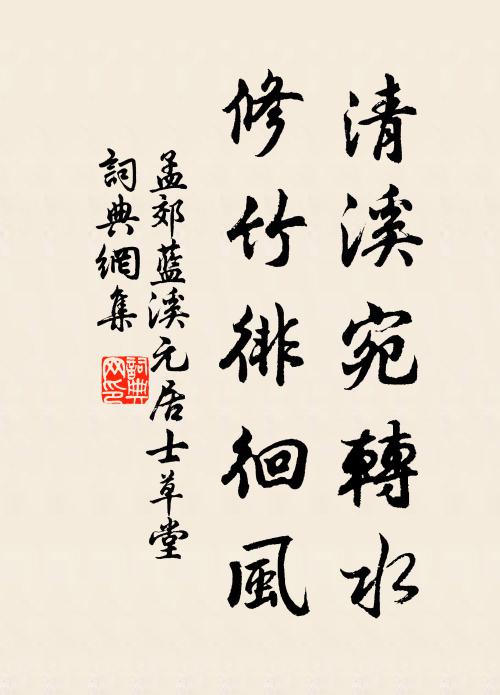 清溪宛轉水
修竹徘徊風
孟郊藍溪元居士草堂
詞典網集
詞典網印